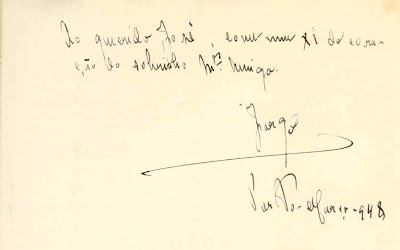 Ao querido José, com um xi do cora-
ção do sobrinho Mto. Amigo
Jorge
Porto - Março - 948